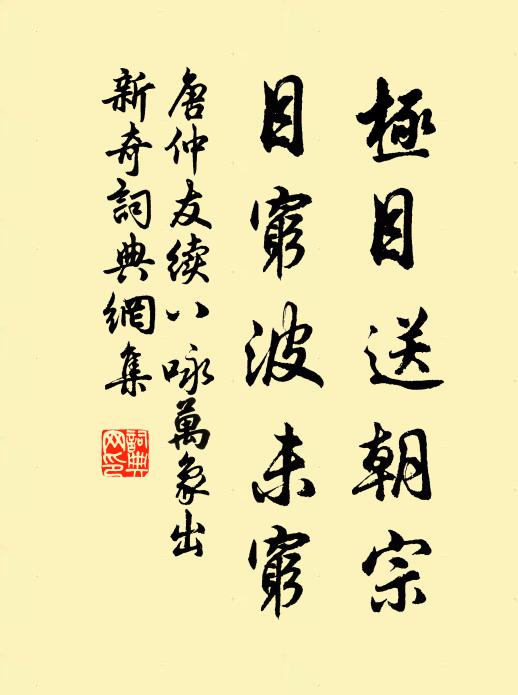 極目送朝宗
目窮波未窮
唐仲友續八咏萬象出
新奇詞典網集
詞典网印